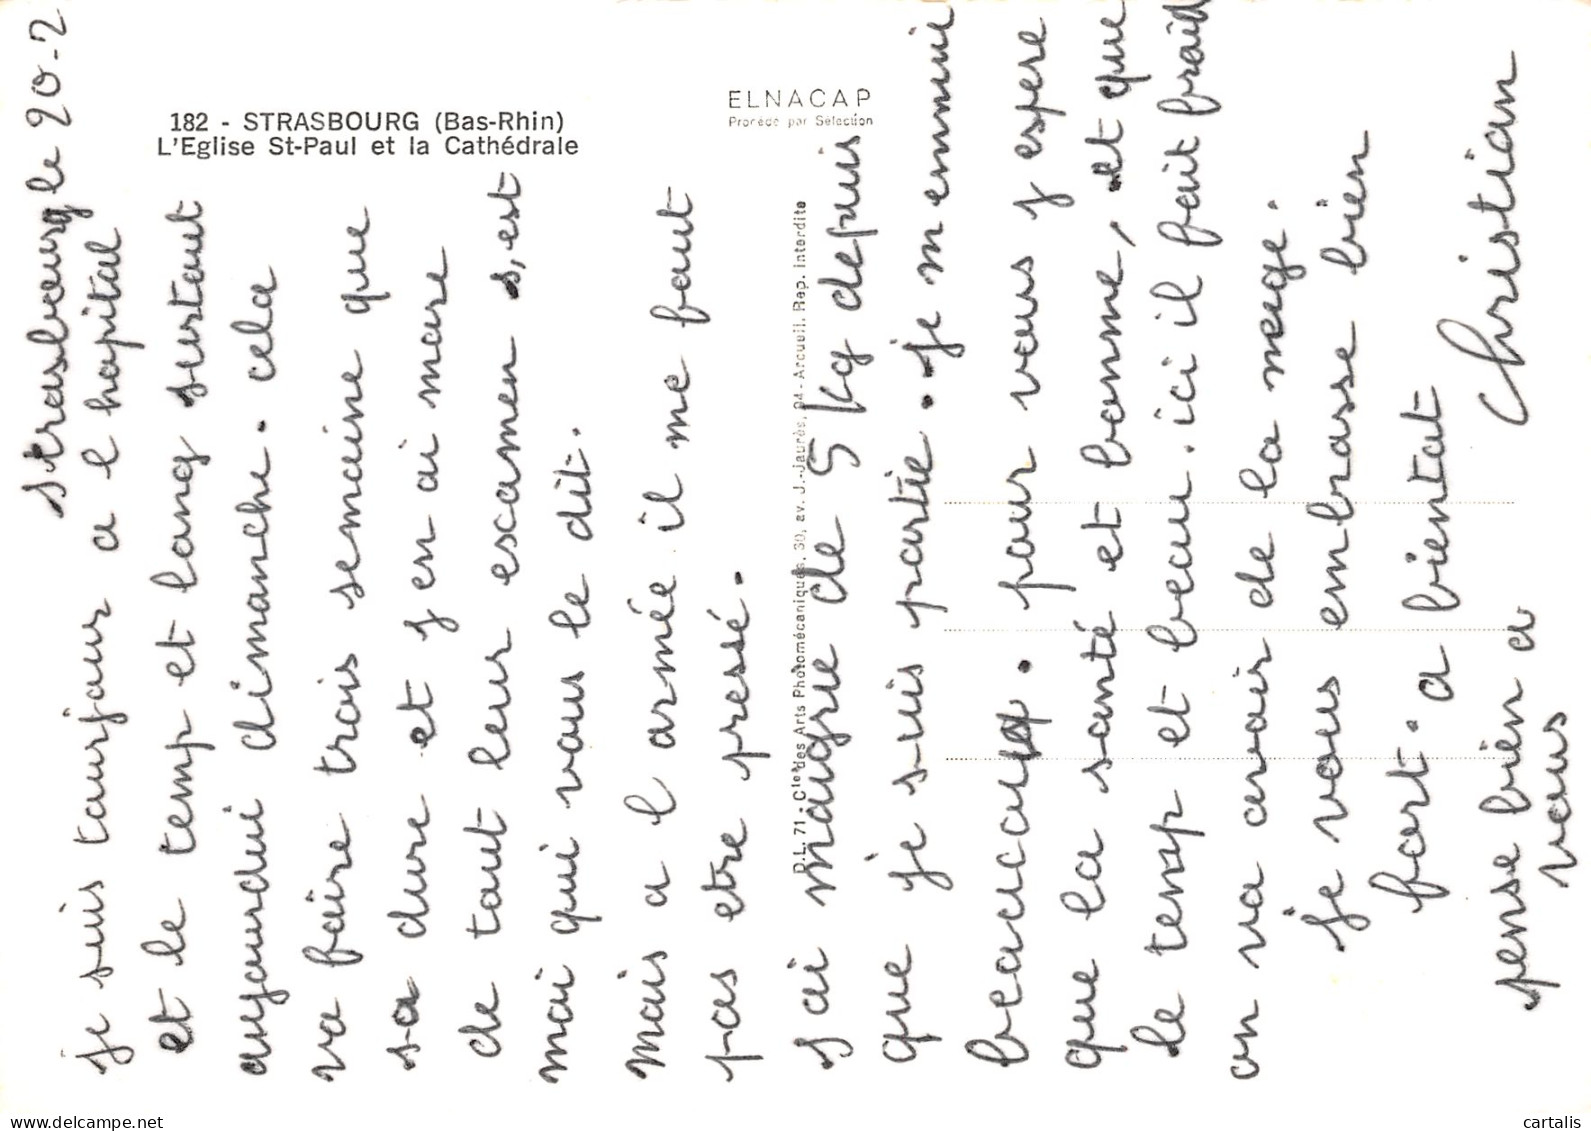 182 - STRASBOURG (Bas-Rhin)
L'Eglise St-Paul et la Cathédrale
ELNACAP
Procédé par Sélection
D.L. 71 - Cie des Arts Photomécaniques, 30, av. J.-Jaurès, 94 - Arcueil. Rep. interdite
strasbourg le 20-2
je suis toujour a l hopital
et le temp et long surtout
aujourdui dimanche. cela
va faire trois semaine que
sa dure et j en ai mare
de tout leur escamen s, est
moi qui vous le dit.
mais a l armée il me faut
pas etre pressé.
j ai maugrie de 5 kg depuis
que je suis partie. je m ennuie
beaucoup. pour vous j espere
que la santé et bonne, et que
le temp et beau. ici il fait froid
on va avoir de la neige.
je vous embrasse bien
fort. a bientot
Christian
pense bien a
vous
www.delcampe.net
cartalis